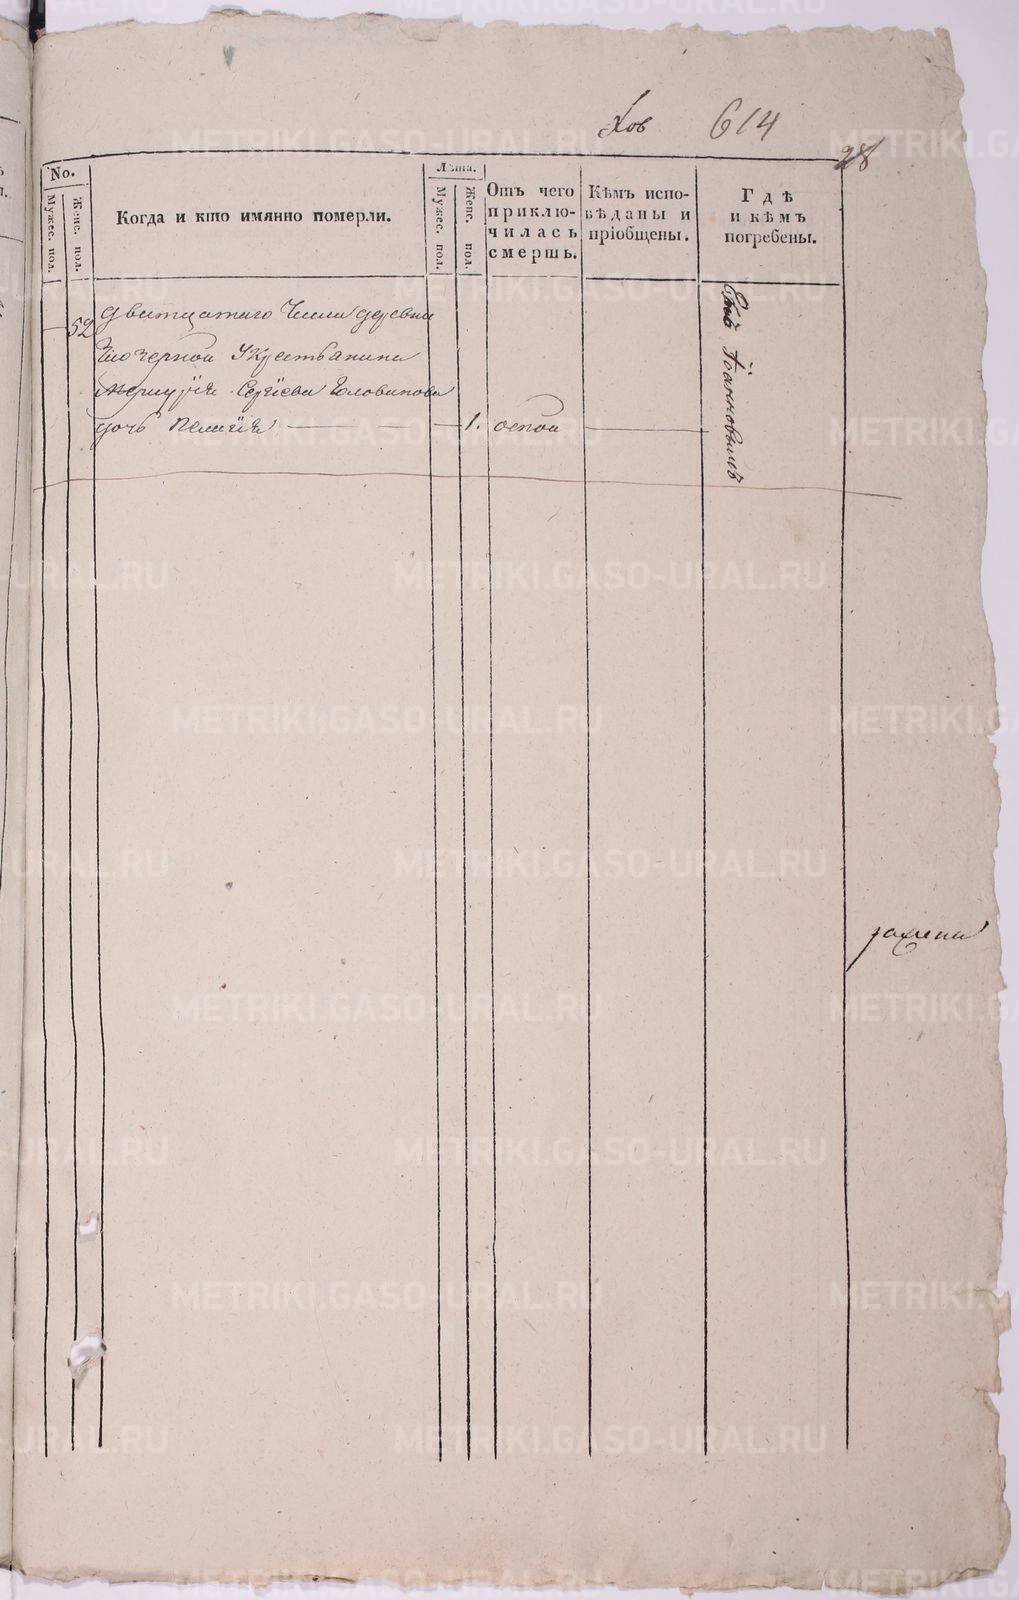 Хов 614
28
No.
Мужес. пол.
Женс. пол.
Когда и кто имянно померли.
Лѣта.
Мужес. пол.
Женс. пол.
Отъ чего
приклю-
чилась
смерть.
Кѣмъ испо-
вѣданы и
пріобщены.
Гдѣ
и кѣмъ
погребены.
52 дватцатаго числа деревни
У крестьянина
Сергіева Головинова
дочь Пелагія 1. оспой
Имъ Іоанновымъ
METRIKI.GASO-URAL.RU